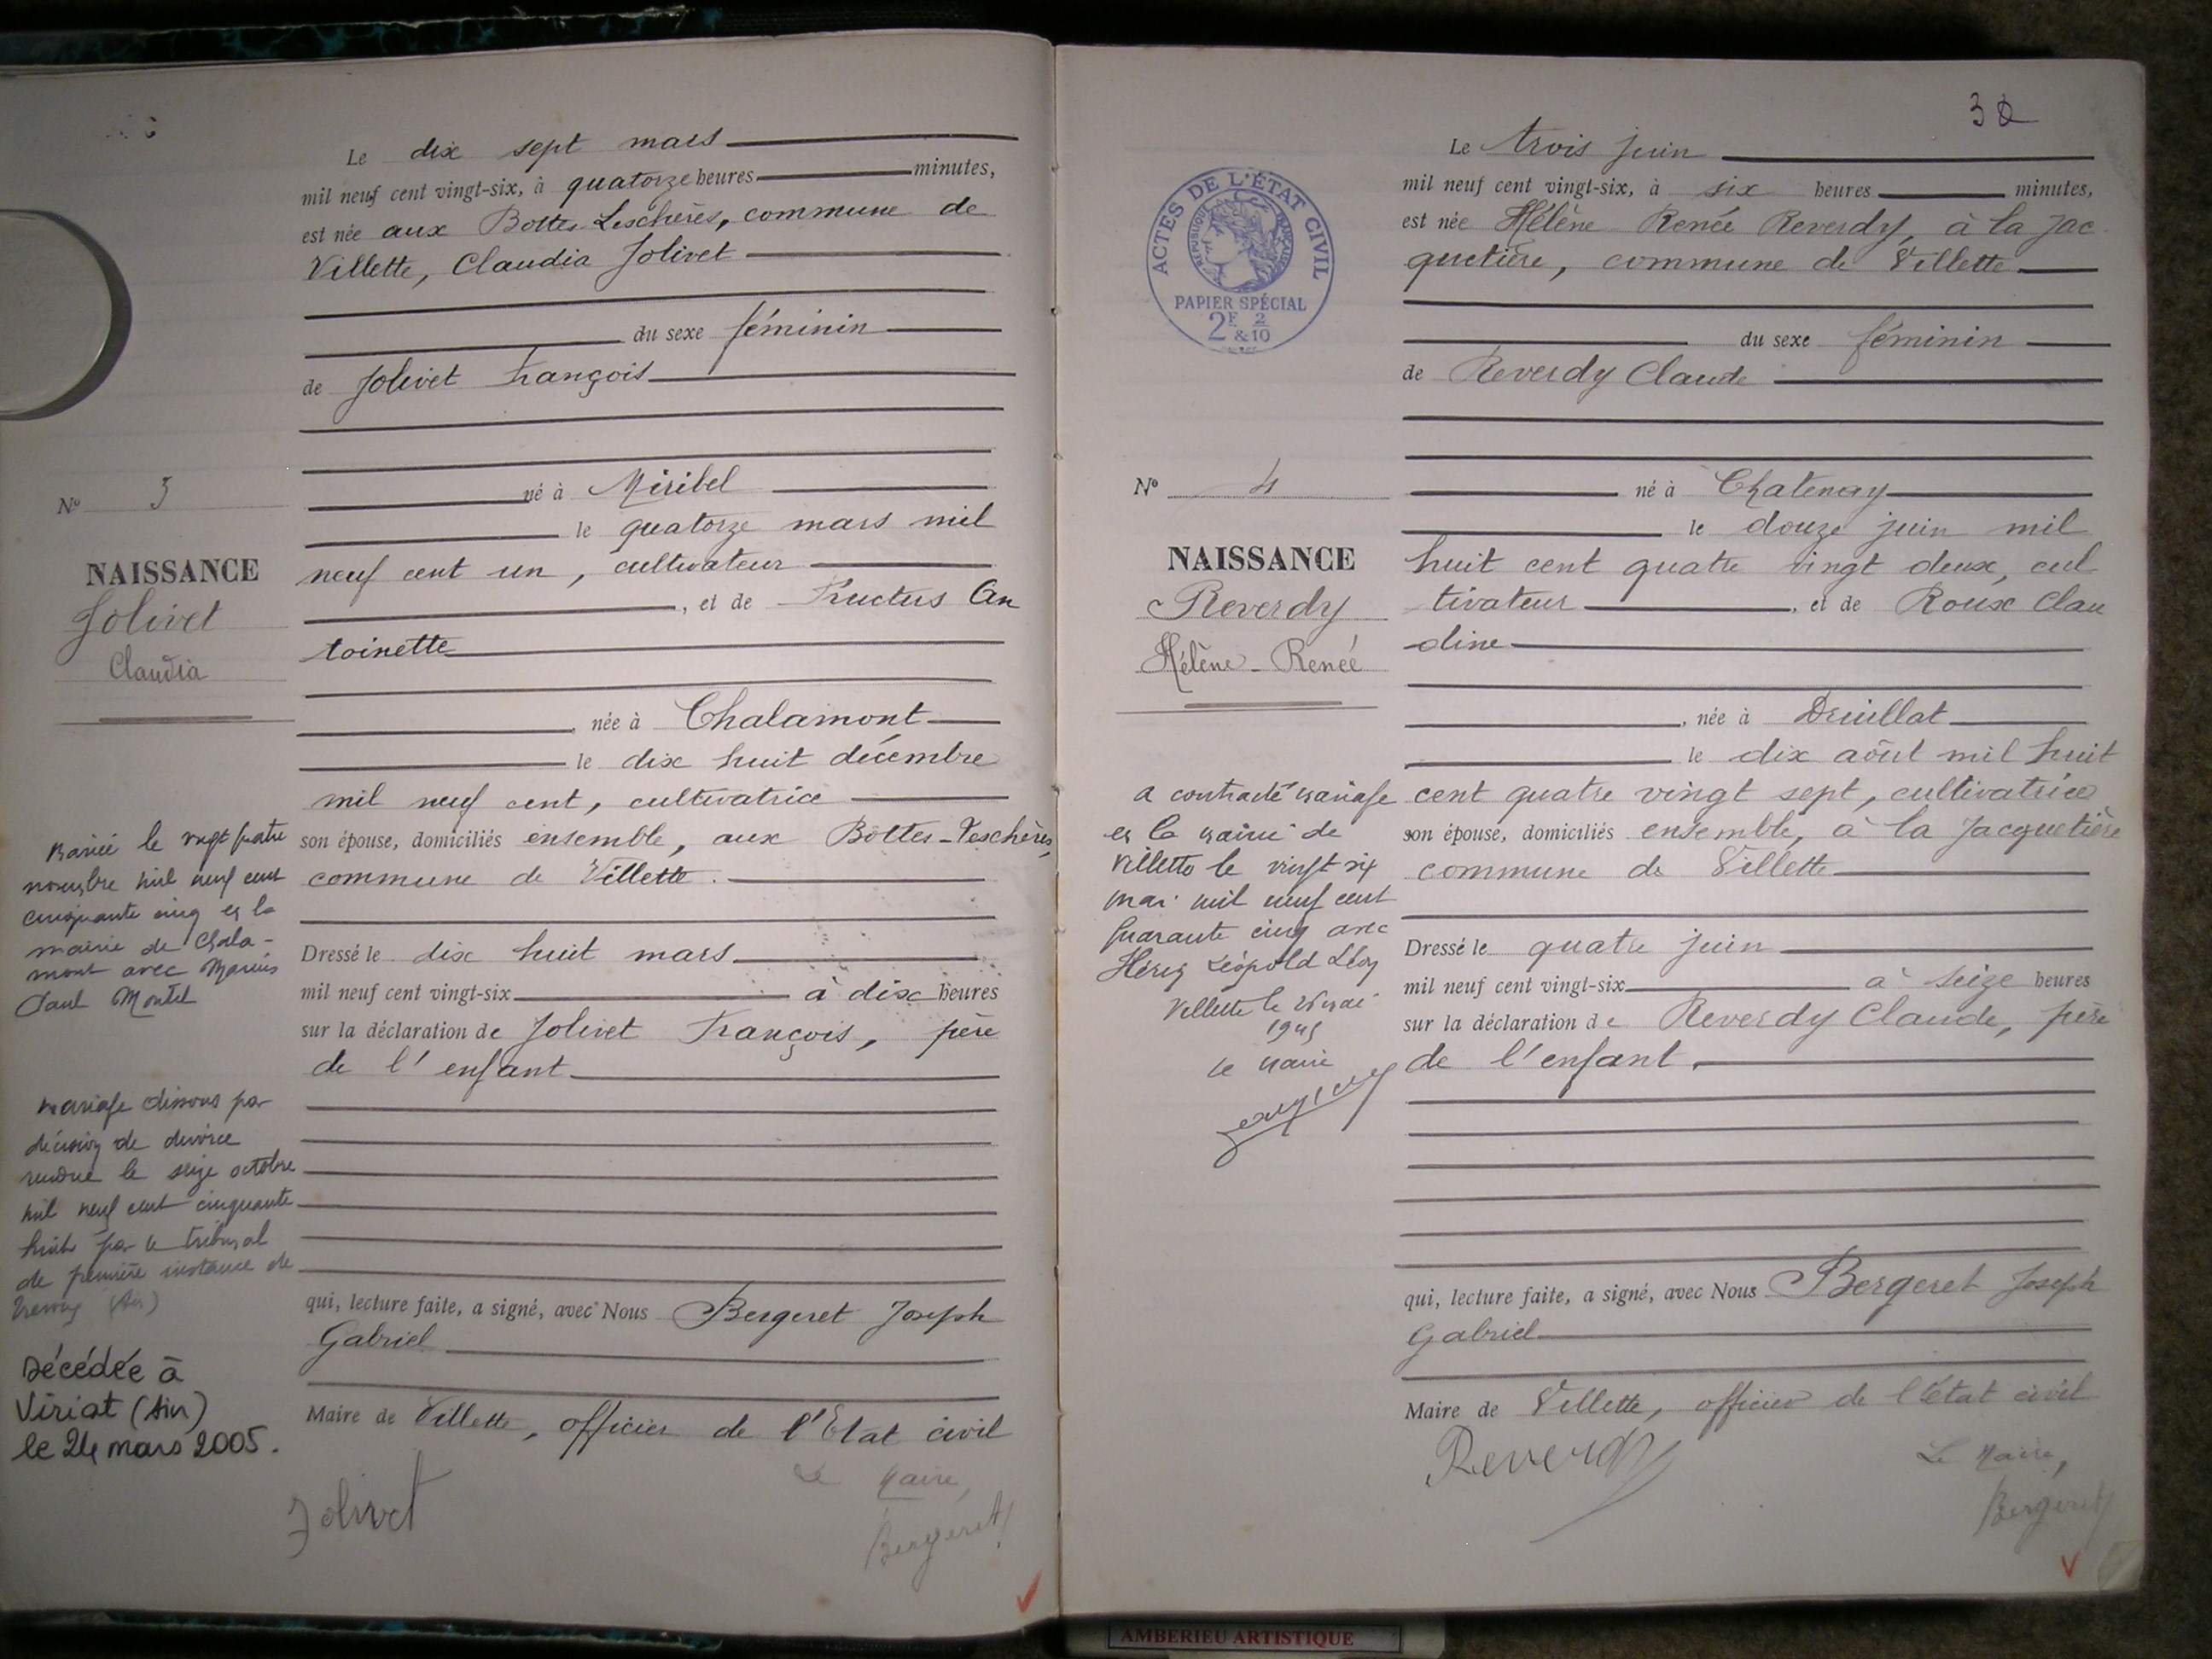 Le dix sept mars
mil neuf cent vingt-six, à quatorze heures minutes,
est née aux Bottes-Leschères, commune de
Villette, Claudia Jolivet
du sexe féminin
de Jolivet François
né à Miribel
le quatorze mars mil
neuf cent un, cultivateur
, et de Fructus An
toinette
, née à Chalamont
le dix huit décembre
mil neuf cent, cultivatrice
son épouse, domiciliés ensemble, aux Bottes-Leschères,
commune de Villette.
Dressé le dix huit mars
mil neuf cent vingt-six à dix heures
sur la déclaration de Jolivet François, père
de l'enfant
qui, lecture faite, a signé, avec Nous Bergeret Joseph
Gabriel
Maire de Villette, officier de l'Etat civil
Le Maire,
Jolivet
Bergeret
No 3
NAISSANCE
Jolivet
Claudia
Mariée le vingt quatre
novembre mil neuf cent
cinquante cinq en la
mairie de Chala-
mont avec Marius
Paul Montel
Mariage dissous par
décision de divorce
rendue le seize octobre
mil neuf cent cinquante
huit par le tribunal
de première instance de
(Ain)
Décédée à
Viriat (Ain)
le 24 mars 2005.
3
ACTES DE L'ÉTAT CIVIL
RÉPUBLIQUE FRANÇAISE
PAPIER SPÉCIAL
2F & 2/10
No 4
NAISSANCE
Reverdy
Hélène-Renée
a contracté mariage
en la mairie de
Villette le vingt six
mai mil neuf cent
quarante cinq avec
Léopold Léon
Villette le 26 mai
1945
Le Maire
Le trois juin
mil neuf cent vingt-six, à six heures minutes,
est née Hélène Renée Reverdy, à la Jac
quetière, commune de Villette
du sexe féminin
de Reverdy Claude
né à Chatenay
le douze juin mil
huit cent quatre vingt deux, cul
tivateur , et de Roux Clau
dine
, née à Druillat
le dix août mil huit
cent quatre vingt sept, cultivatrice
son épouse, domiciliés ensemble, à la Jacquetière
commune de Villette
Dressé le quatre juin
mil neuf cent vingt-six à seize heures
sur la déclaration de Reverdy Claude, père
de l'enfant.
qui, lecture faite, a signé, avec Nous Bergeret Joseph
Gabriel
Maire de Villette, officier de l'état civil
Le Maire,
Reverdy
Bergeret
AMBERIEU ARTISTIQUE